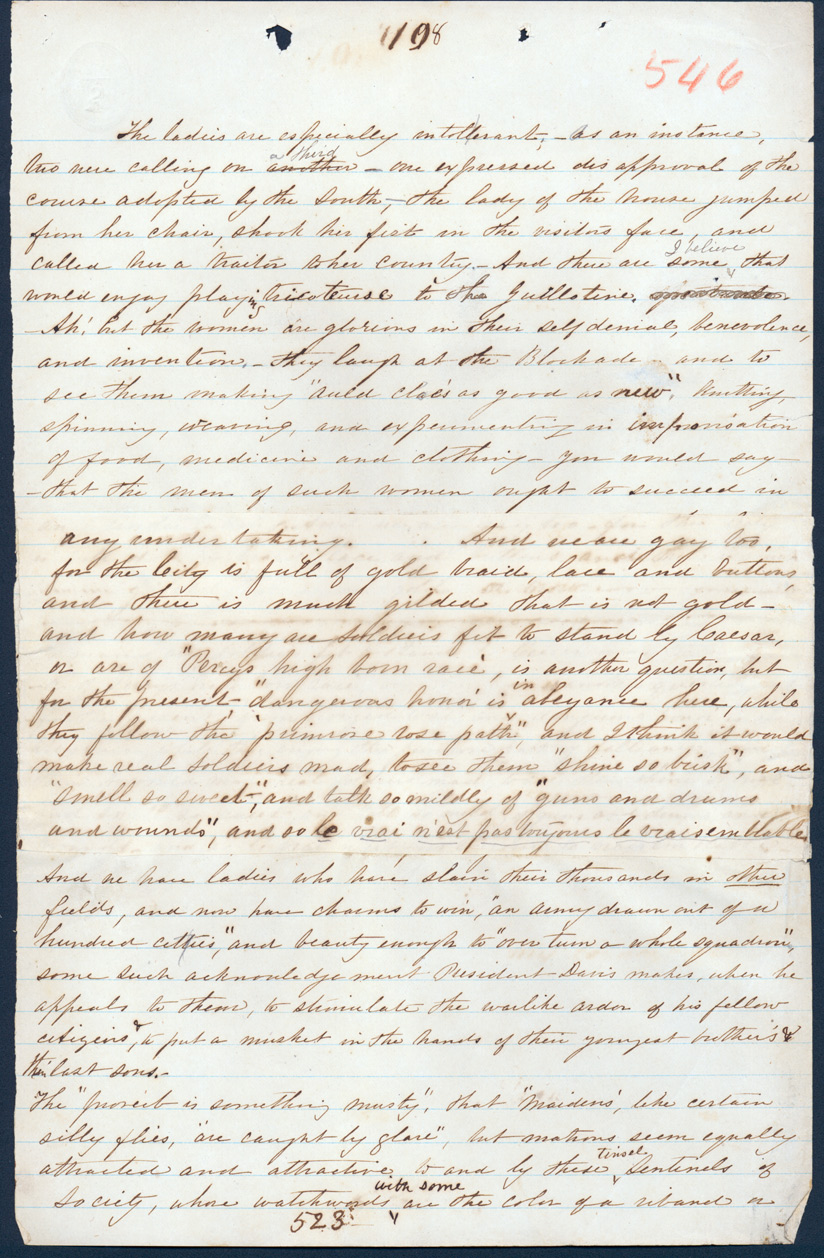 198
546
The ladies are especially intollerant, - as an instance,
two were calling on a third another - one expressed disapproval of the
course adopted by the South, - the lady of the house jumped
from her chair, shook her fist in the visitors face, and
called her a traitor to her country. - And there are some I believe that
would enjoy playing tricoteuse to the Guillotine.
- Ah! but the women are glorious in their self denial, benevolence,
and invention. - they laugh at the Blockade - and to
see them making "auld claes as good as new". Knitting,
spinning, weaving, and experimenting in improvisation
of food, medicine and clothing - you would say -
- that the men of such women ought to succeed in
any undertaking. . And we are gay too,
for the City is full of gold braid, lace and buttons,
and there is much gilded that is not gold -
and how many are soldiers fit to stand by Caesar,
or are of "Percys high born race", is another question, but
for the present, "dangerous honor" is in abeyance here, while
they follow the "primrose rose path", and I think it would
make real soldiers mad, to see them "shine so brisk", and
"smell so sweet", and talk so mildly of "guns and drums
and wounds", and so le vrai n'est pas toujours le vraisemblable.
And we have ladies who have slain their thousands in other
fields, and now have charms to win, "an army drawn out of a
hundred citties," and beauty enough to "over turn a whole squadron",
some such acknowledgement President Davis makes, when he
appeals to them, to stimulate the warlike ardor of his fellow
citizens, & to put a musket in the hands of their youngest brothers &
their last sons. -
The "proverb is something musty", that "maidens', like certain
silly flies, "are caught by glare", but matrons seem equally
attracted and attractive to and by these tinsel Sentinels of
Society, whose watchwords with some are the color of a riband or
523